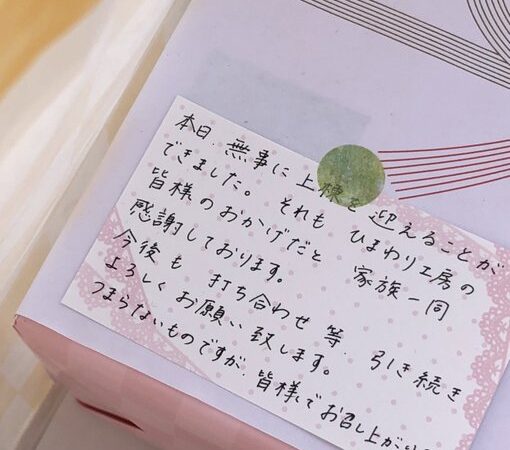 本日 無事に 上棟を 迎えることが
できました。 それも ひまわり工房の
皆様のおかげだと 家族一同
感謝しております。
今後も 打ち合わせ 等 引き続き
よろしく お願い 致します。
つまらないものですが 皆様でお召し上がり